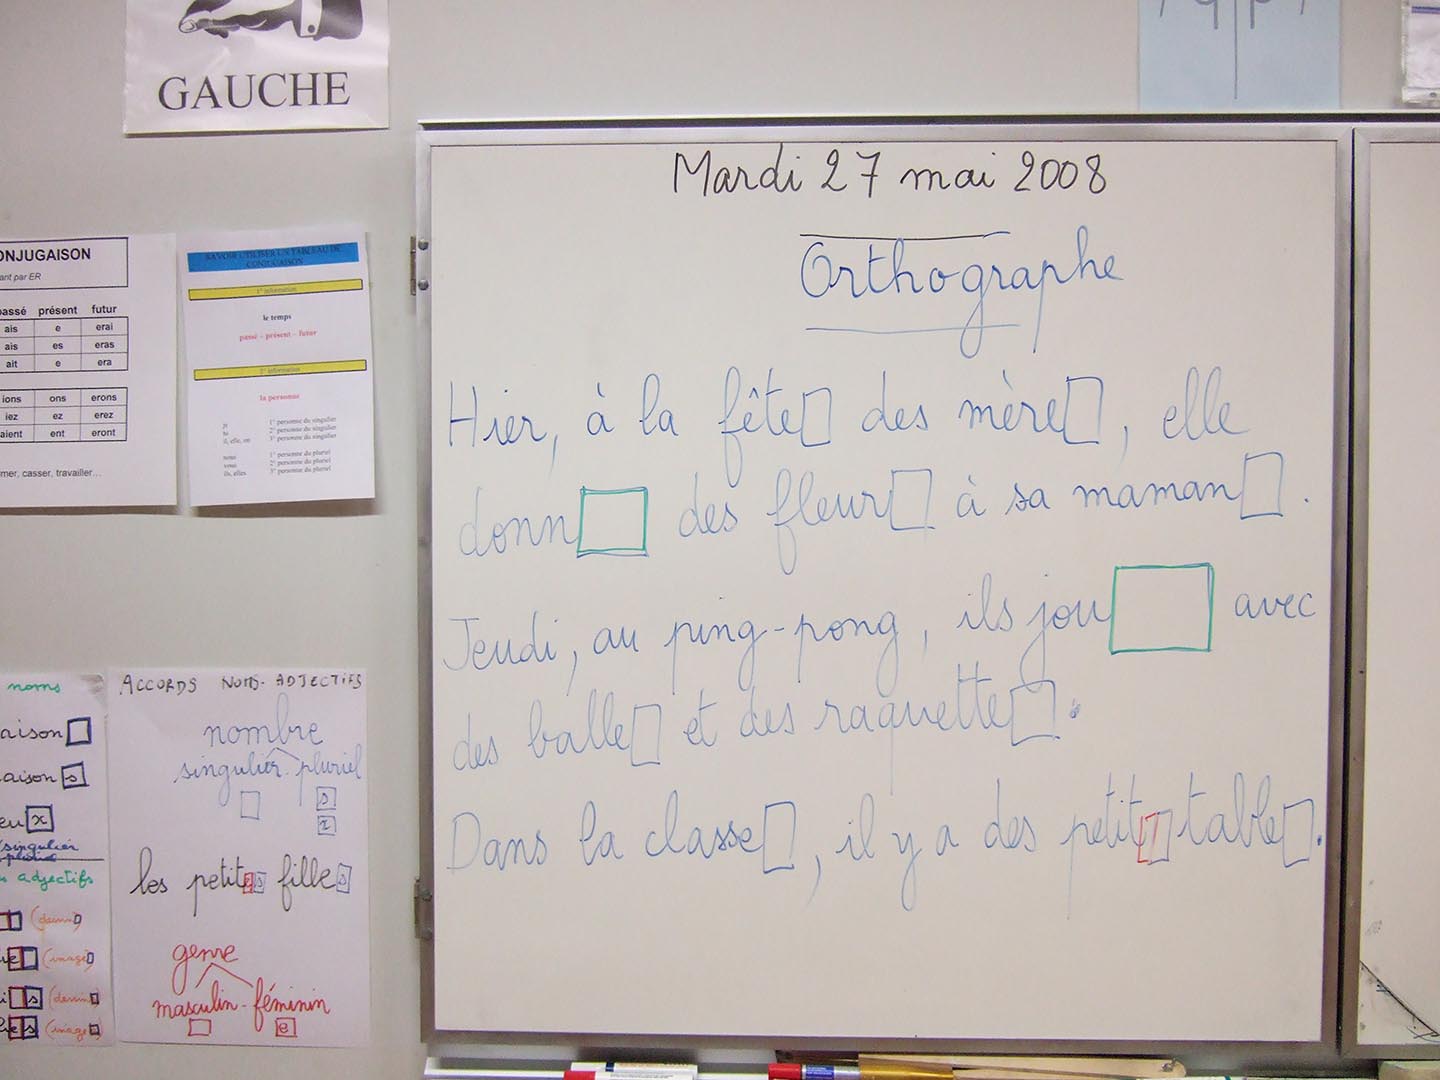 GAUCHE
Mardi 27 mai 2008
Orthographe
Hier, à la fête□ des mère□, elle
donn□ des fleur□ à sa maman□.
Jeudi, au ping-pong, ils jou□ avec
des balle□ et des raquette□.
Dans la classe□, il y a des petit□□ table□.
ONJUGAISON
ant par ER
passé présent futur
ais e erai
ais es eras
ait e era
ions ons erons
iez ez erez
aient ent eront
mer, casser, travailler...
SAVOIR UTILISER UN TABLEAU DE
CONJUGAISON
1° information
le temps
passé – présent – futur
2° information
la personne
je 1° personne du singulier
tu 2° personne du singulier
il, elle, on 3° personne du singulier
nous 1° personne du pluriel
vous 2° personne du pluriel
ils, elles 3° personne du pluriel
noms
aison□
aison s
eu x
singulier
pluriel
adjectifs
ACCORDS NOMS-ADJECTIFS
nombre
singulier - pluriel
s
x
les petites filles
genre
masculin - féminin
e